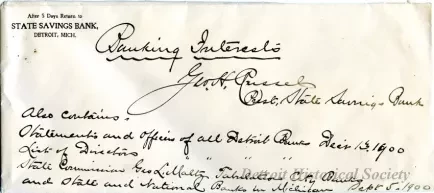 After 5 Days Return to
STATE SAVINGS BANK,
DETROIT, MICH.
Banking Interests
Geo. H. Russel
Prest. State Savings Bank
Also contains:
Statements and officers of all Detroit Banks Decr 13, 1900
List of Directors " " " "
State Commissioner Geo L Maltz Tables on City Banks
and State and National Banks in Michican Sept 5. 1900
Detroit Historical Society